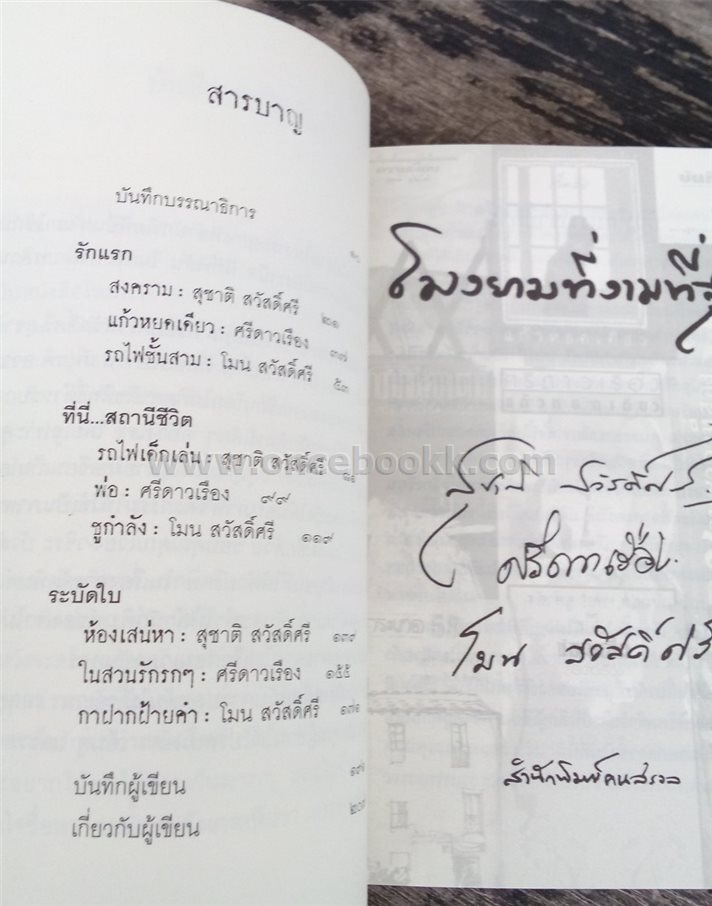 สารบาญ
บันทึกบรรณาธิการ
รักแรก
สงคราม : สุชาติ สวัสดิ์ศรี ๒๑
แก้วหยดเดียว : ศรีดาวเรือง ๓๗
รถไฟชั้นสาม : โมน สวัสดิ์ศรี ๕๓
ที่นี่...สถานีชีวิต
รถไฟเด็กเล่น : สุชาติ สวัสดิ์ศรี
พ่อ : ศรีดาวเรือง ๙๙
ชูกำลัง : โมน สวัสดิ์ศรี ๑๑๙
ระบัดใบ
ห้องเสน่หา : สุชาติ สวัสดิ์ศรี ๑๓๙
ในสวนรักรกๆ : ศรีดาวเรือง ๑๕๕
กาฝากฝ้ายคำ : โมน สวัสดิ์ศรี ๑๗๑
บันทึกผู้เขียน
เกี่ยวกับผู้เขียน
www.oncebookk.com
โมงยามที่งามที่สุ
สุชาติ สวัสดิ์ศรี
ศรีดาวเรือง
โมน สวัสดิ์ศรี
สำนักพิมพ์คนสรวล